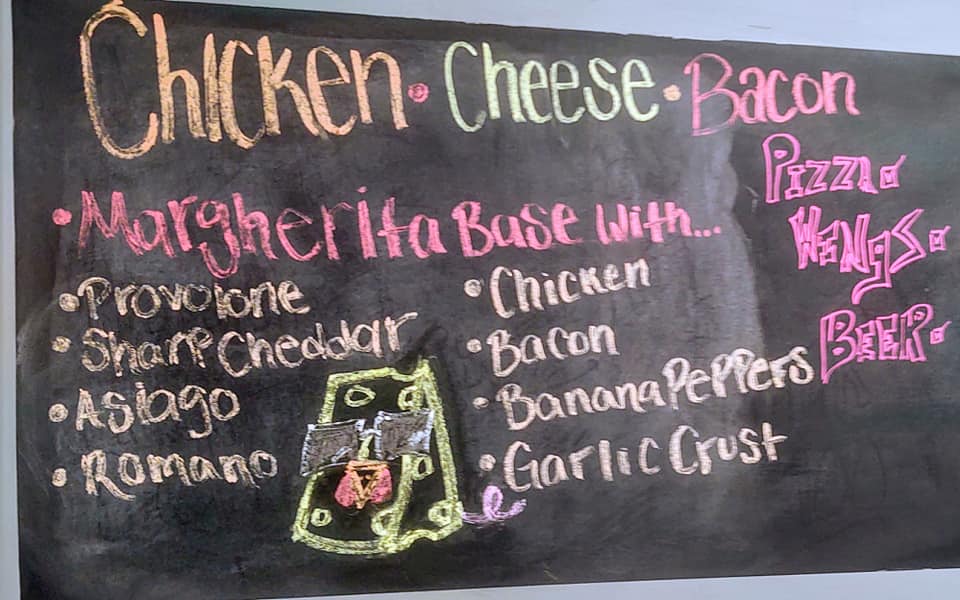 Chicken • Cheese • Bacon
Pizza.
Wings.
Beer.
• Margherita Base With...
• Provolone
• Sharp Cheddar
• Asiago
• Romano
• Chicken
• Bacon
• Banana Peppers
• Garlic Crust